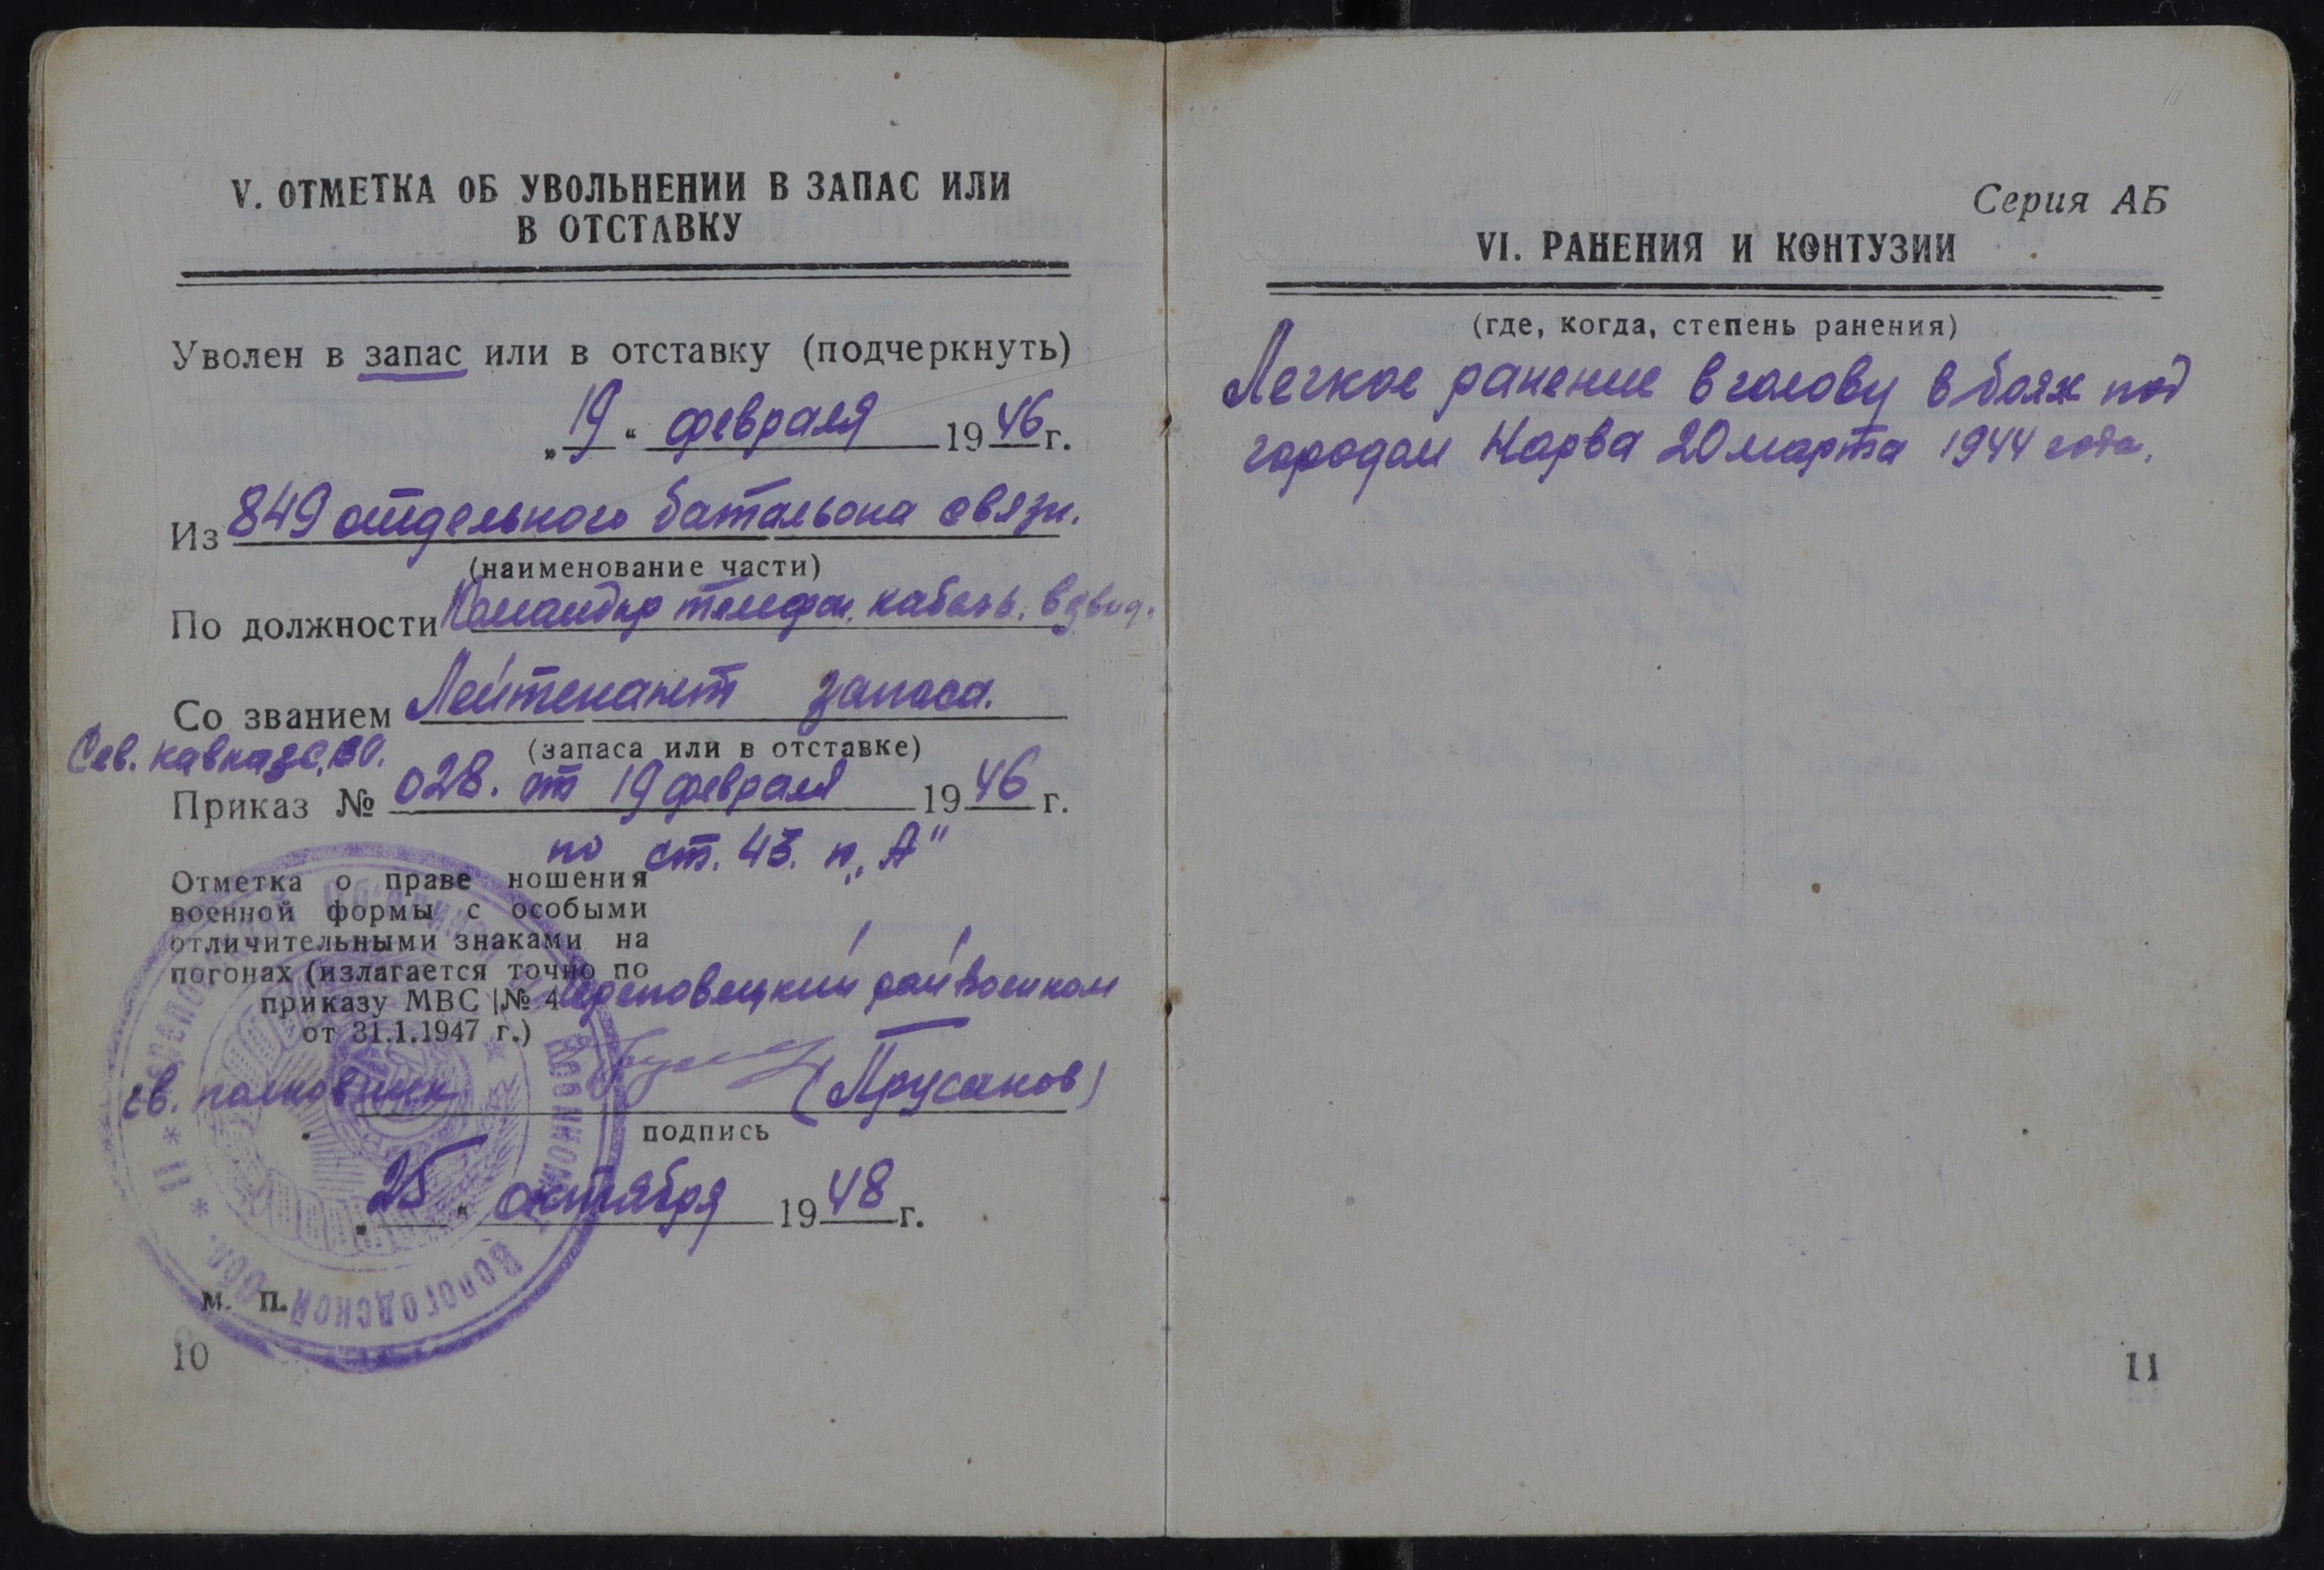 V. ОТМЕТКА ОБ УВОЛЬНЕНИИ В ЗАПАС ИЛИ
В ОТСТАВКУ
Уволен в запас или в отставку (подчеркнуть)
„19“ февраля 1946 г.
Из 849 отдельного батальона связи.
(наименование части)
По должности Командир телефон. кабель.
Со званием Лейтенант запаса.
(запаса или в отставке)
Сев. Кавказс. ВО.
Приказ № 028. от 19 февраля 1946 г.
по ст. 43. п. „А“
Отметка о праве ношения
военной формы с особыми
отличительными знаками на
погонах (излагается точно по
приказу МВС № 4
от 31.1.1947 г.)
Череповецкий райвоенком
гв. полковник (Прусаков)
подпись
„25“ октября 1948 г.
м. п.
Вологодской обл.
10
Серия АБ
VI. РАНЕНИЯ И КОНТУЗИИ
(где, когда, степень ранения)
Легкое ранение в голову в боях под
городом Нарва 20 марта 1944 года.
11